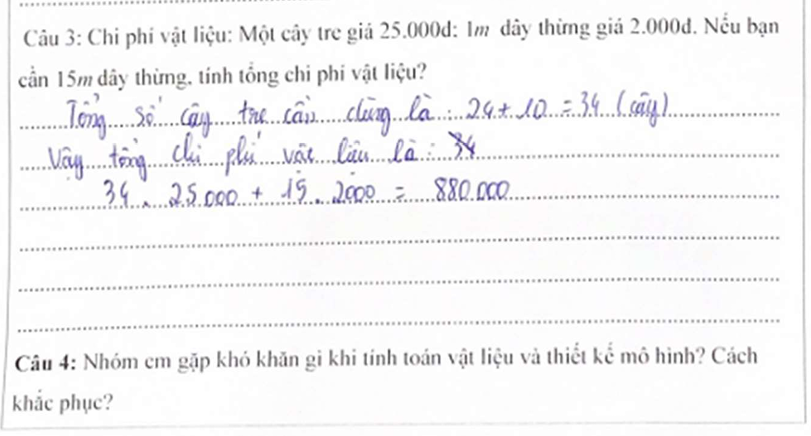 Câu 3: Chi phí vật liệu: Một cây tre giá 25.000đ: 1m dây thừng giá 2.000đ. Nếu bạn
cần 15m dây thừng. tính tổng chi phí vật liệu?
Tổng số cây tre cần dùng là: 24 + 10 = 34 (cây)
Vậy tổng chi phí vât liêu là: 34
34 . 25.000 + 15 . 2000 = 880.000
Câu 4: Nhóm em gặp khó khăn gì khi tính toán vật liệu và thiết kế mô hình? Cách
khắc phục?